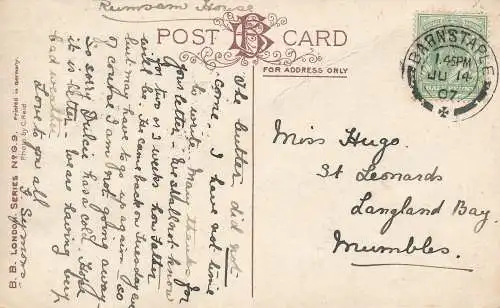 Rumsam House
POST CARD
FOR ADDRESS ONLY
BARNSTAPLE
1.45PM
JU 14
07
The butter did not
come. I have not time
to write. Many thanks for
your letter. We shall not know
for two or 3 weeks how Father
will be. He came back on Tuesday
but may have to go up again so
of course I am not going away
So sorry Dulcie has cold. Hope
it is better. We are having very
bad weather
Love to you all
Symons
Miss Hugo.
St Leonards
Langland Bay.
Mumbles.
B. B. LONDON. SERIES No G. 9.
Printed in Germany.
Photo by C. Reid